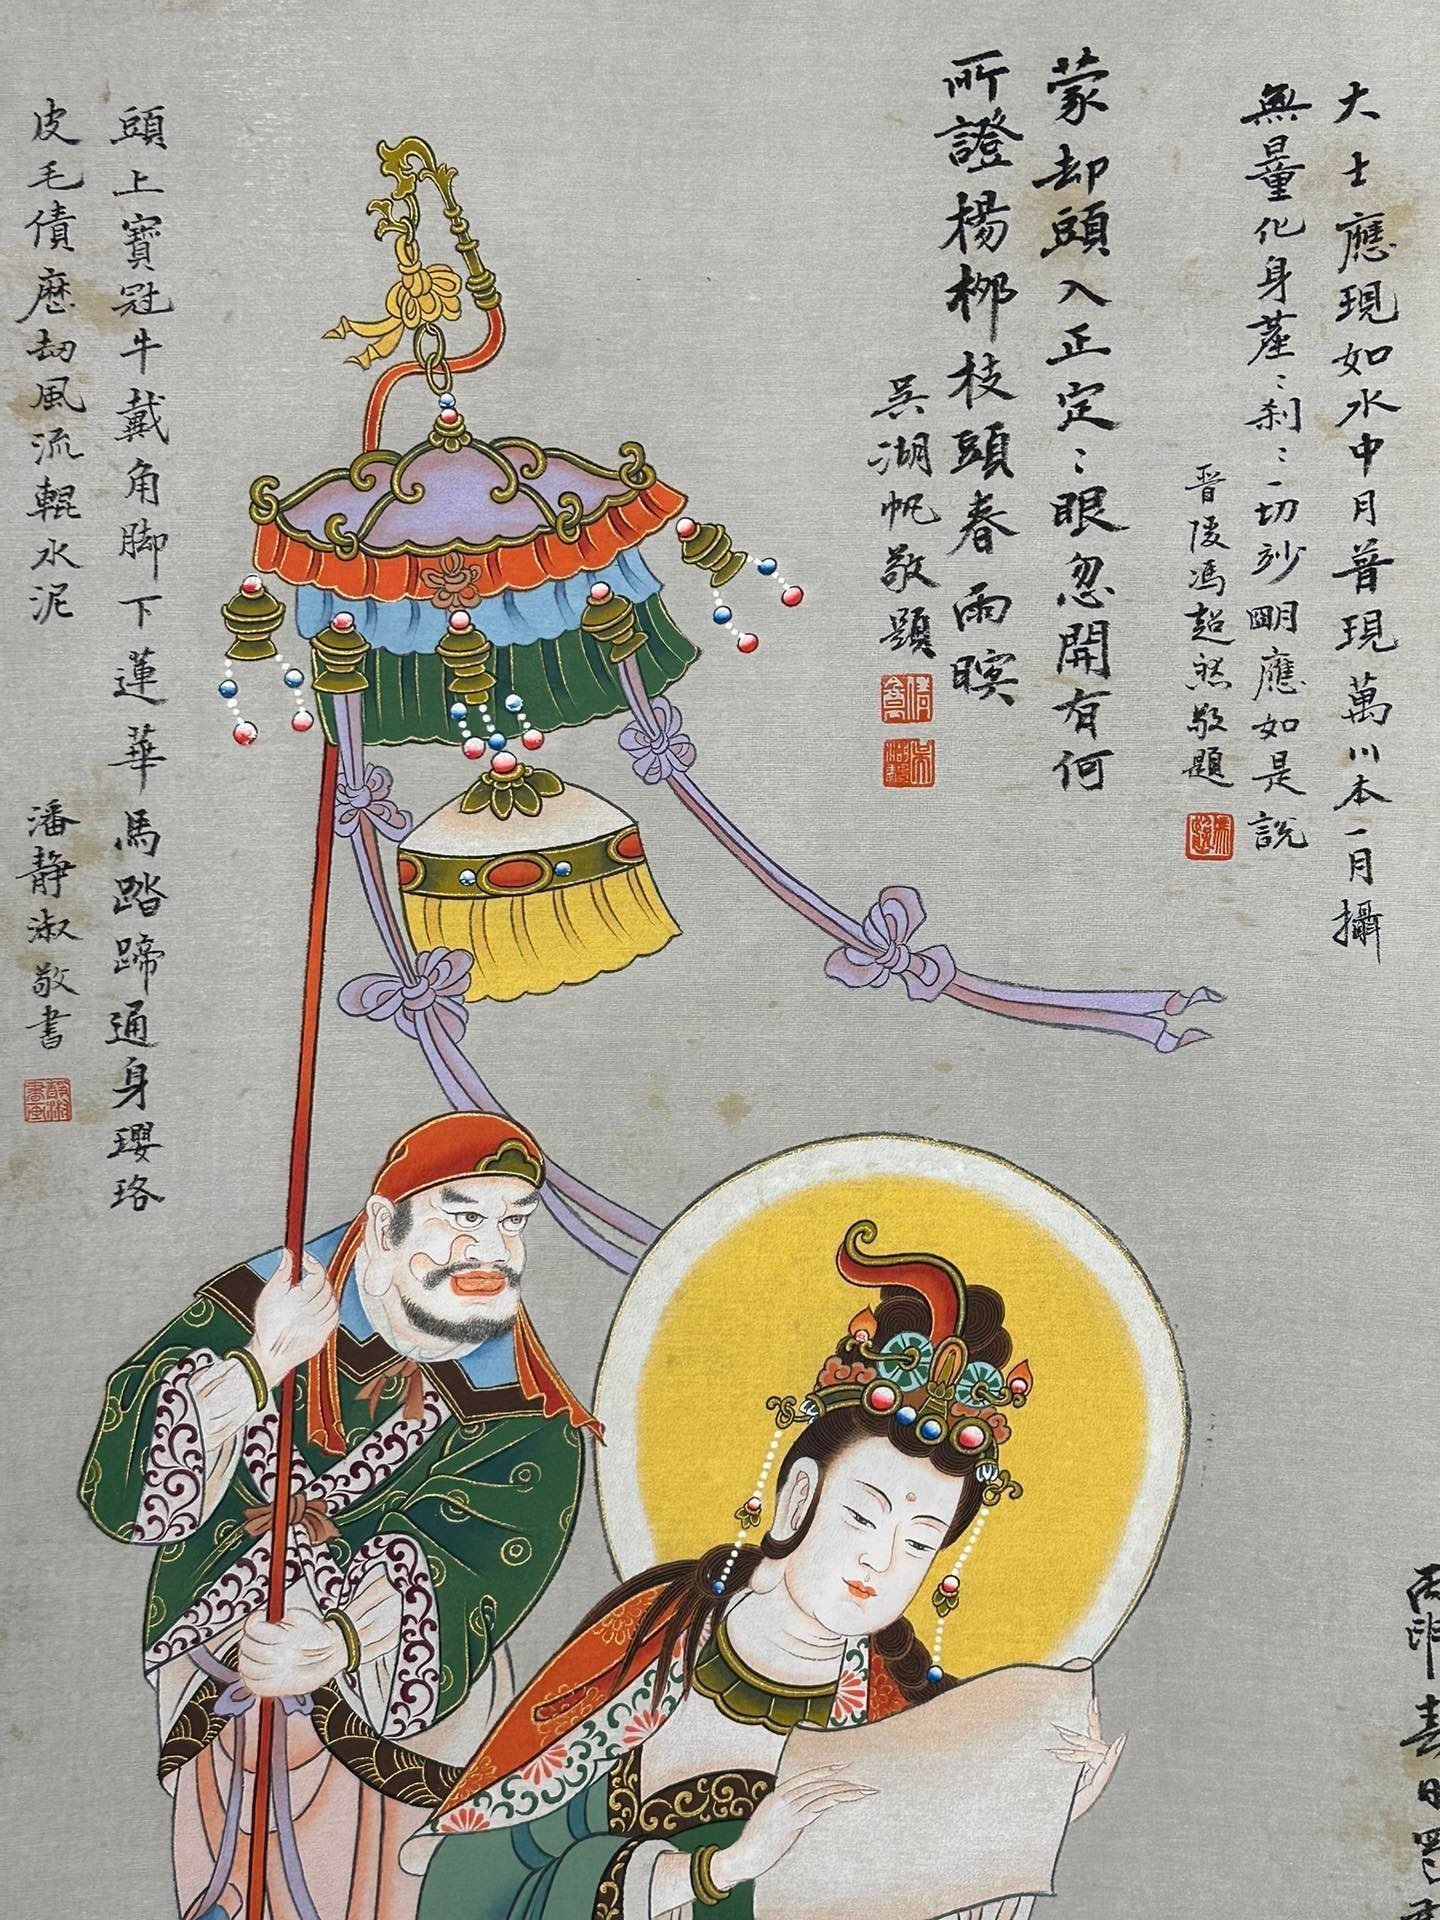 大士應現如水中月普現萬川本一月攝
無量化身塵〻刹〻一切妙明應如是說
晋陵馮超然敬題
蒙却頭入正定〻眼忽開有何
所證楊柳枝頭春雨暝
吳湖帆敬題
頭上寶冠牛戴角脚下蓮華馬踏蹄通身瓔珞
皮毛債歷劫風流輥水泥
潘靜淑敬書
丙
春日